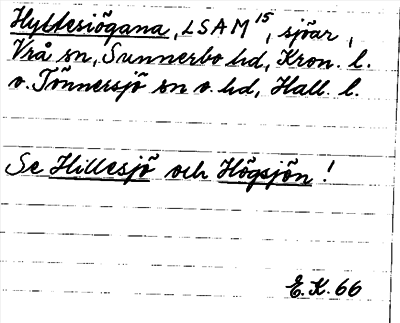 Hyltesiögana, LSAM 15, sjöar,
Vrå sn, Sunnerbo hd, Kron. l.
o. Tönnersjö sn o. hd, Hall. l.
Se Hillesjö och Högsjön!
E.K. 66